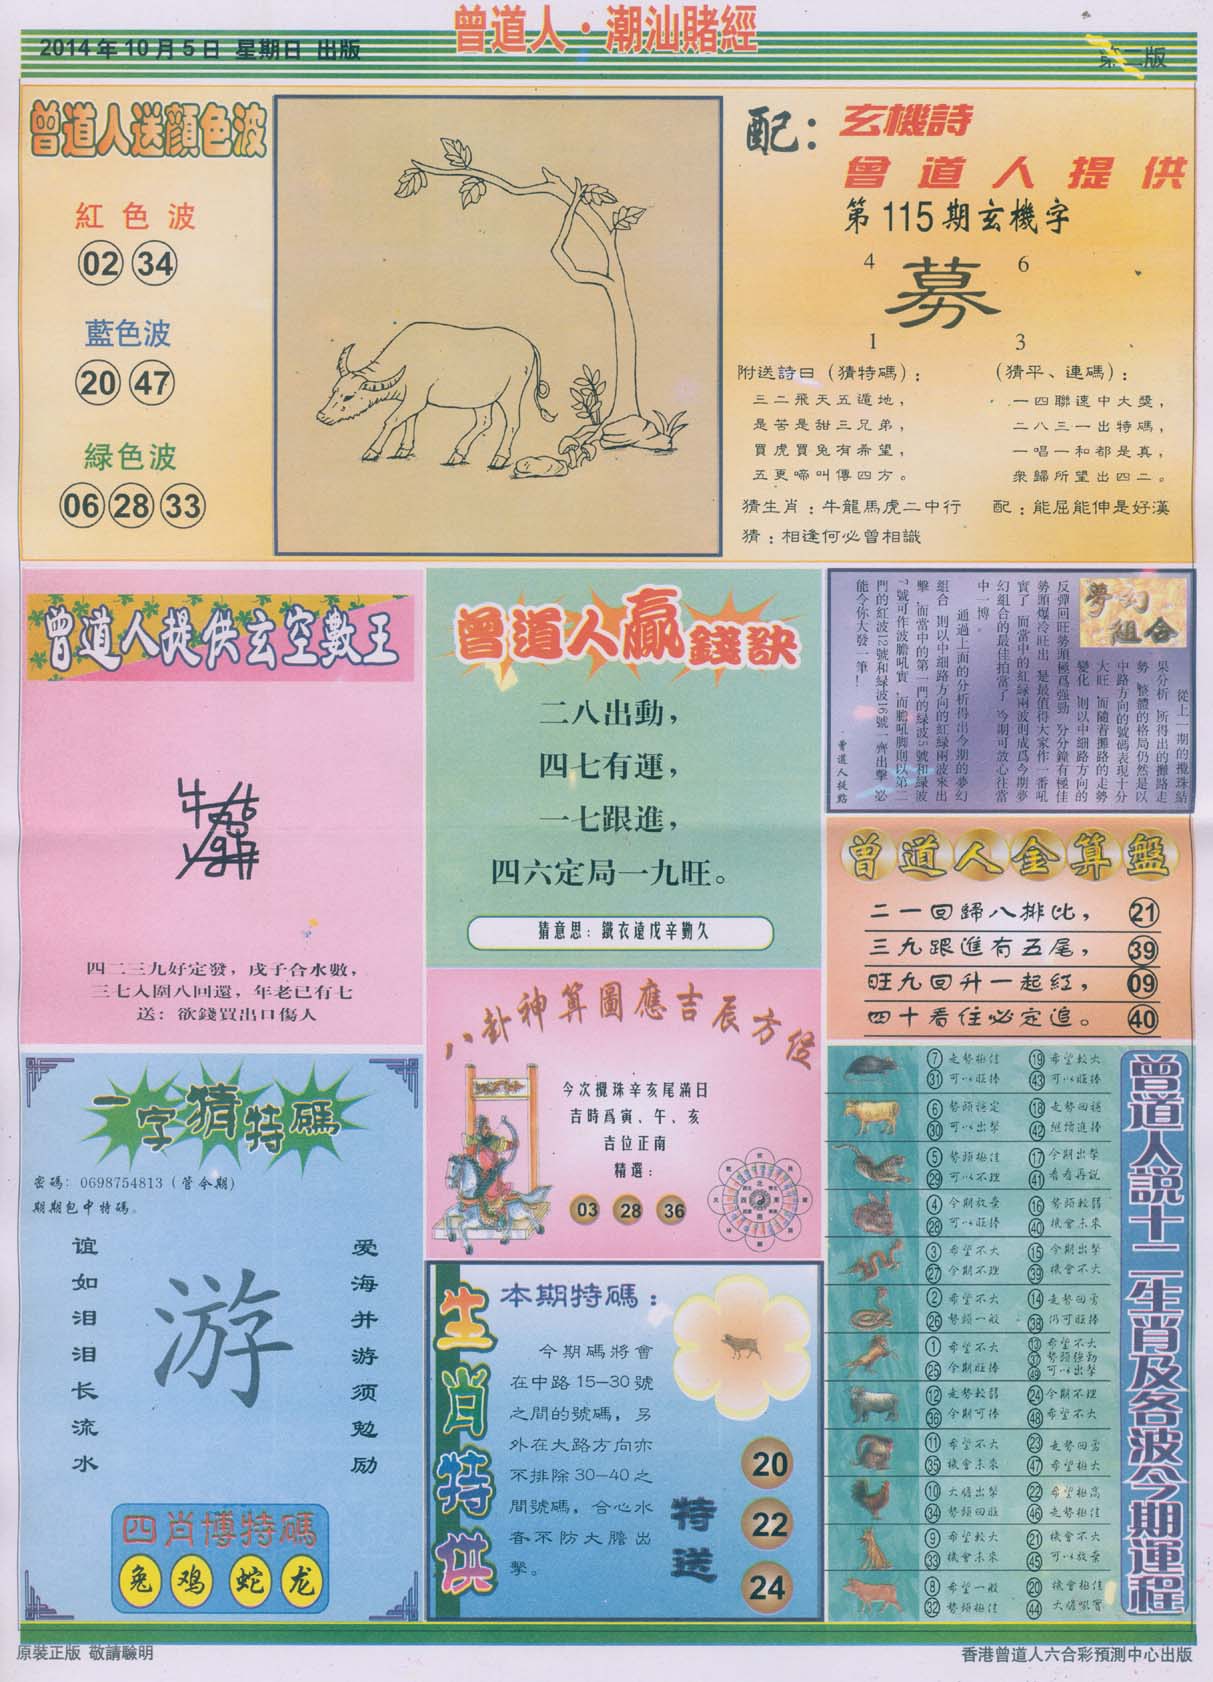 曾道人·潮汕賭經
2014年10月5日 星期日 出版
第二版
曾道人送顔色波
紅色波
02 34
藍色波
20 47
緑色波
06 28 33
配：
玄機詩
曾道人提供
第115期玄機字
4 6
募
1 3
附送詩曰（猜特碼）：
三二飛天五遁地，
是苦是甜三兄弟，
買虎買兔有希望，
五更啼叫傳四方。
猜生肖：牛龍馬虎二中行
猜：相逢何必曾相識
（猜平、連碼）：
一四聯速中大獎，
二八三一出特碼，
一唱一和都是真，
衆歸所望出四二。
配：能屈能伸是好漢
曾道人提供玄空數王
四二三九好定發，戌子合水數，
三七入圍八回還，年老已有七
送：欲錢買出口傷人
曾道人贏錢訣
二八出動，
四七有運，
一七跟進，
四六定局一九旺。
猜意思：鐵衣遠戍辛勤久
夢幻
組合
從上一期的攪珠結
果分析，所得出的攤路走
勢，整體的格局仍然是以
中路方向的號碼表現十分
大旺，而隨着攤路的走勢
變化，則以中細路方向的
反彈回旺勢頭極爲強勁，分分鐘有極佳
勢頭爆冷旺出，是最值得大家作一番吼
實了，而當中的紅緑兩波則成爲今期夢
幻組合的最佳拍當了，今期可放心往當
中一博。
通過上面的分析得出今期的夢幻
組合，則以中細路方向的紅緑兩波來出
擊，而當中的第一門的緑波5號和緑波
號可作波膽吼實，而膽吼脚則以第二
門的紅波12號和緑波16號一齊出擊，必
能令你大發一筆！
曾道人提點
曾道人金算盤
二一回歸八排比， 21
三九跟進有五尾， 39
旺九回升一起紅， 09
四十看住必定追。 40
八卦神算圖應吉辰方位
今次攪珠辛亥尾滿日
吉時爲寅、午、亥
吉位正南
精選：
03 28 36
一字猜特碼
密碼：0698754813（管今期）
期期包中特碼。
谊如泪泪长流水
游
爱海并游须勉励
四肖博特碼
兔 鸡 蛇 龙
生肖特供
本期特碼：
今期碼將會
在中路15—30號
之間的號碼，另
外在大路方向亦
不排除30—40之
間號碼，合心水
者不防大膽出
擊。
特送
20
22
24
曾道人説十二生肖及各波今期運程
7 走勢極佳 19 希望較大
31 可以旺捧 43 可以旺捧
6 勢頭穩定 18 走勢回穩
30 可以出擊 42 繼續追捧
5 勢頭極佳 17 今期出擊
29 可以不理 41 看看再説
4 今期放棄 16 勢頭較弱
28 可以旺捧 40 機會未來
3 希望不大 15 今期出擊
27 今期不理 39 機會不大
2 希望不大 14 走勢回勇
26 勢頭一般 38 仍可旺捧
1 希望不大 13 希望不大
37 勢頭強勁
25 今期旺捧 49 可以出擊
12 走勢較弱 24 今期不理
36 今期可捧 48 希望不大
11 希望不大 23 走勢回勇
35 機會未來 47 希望極大
10 大膽出擊 22 希望極高
34 勢頭回旺 46 走勢極佳
9 希望較大 21 機會不大
33 機會未來 45 可以放棄
8 希望一般 20 機會極佳
32 勢頭極佳 44 大膽吼實
原裝正版 敬請驗明
香港曾道人六合彩預測中心出版